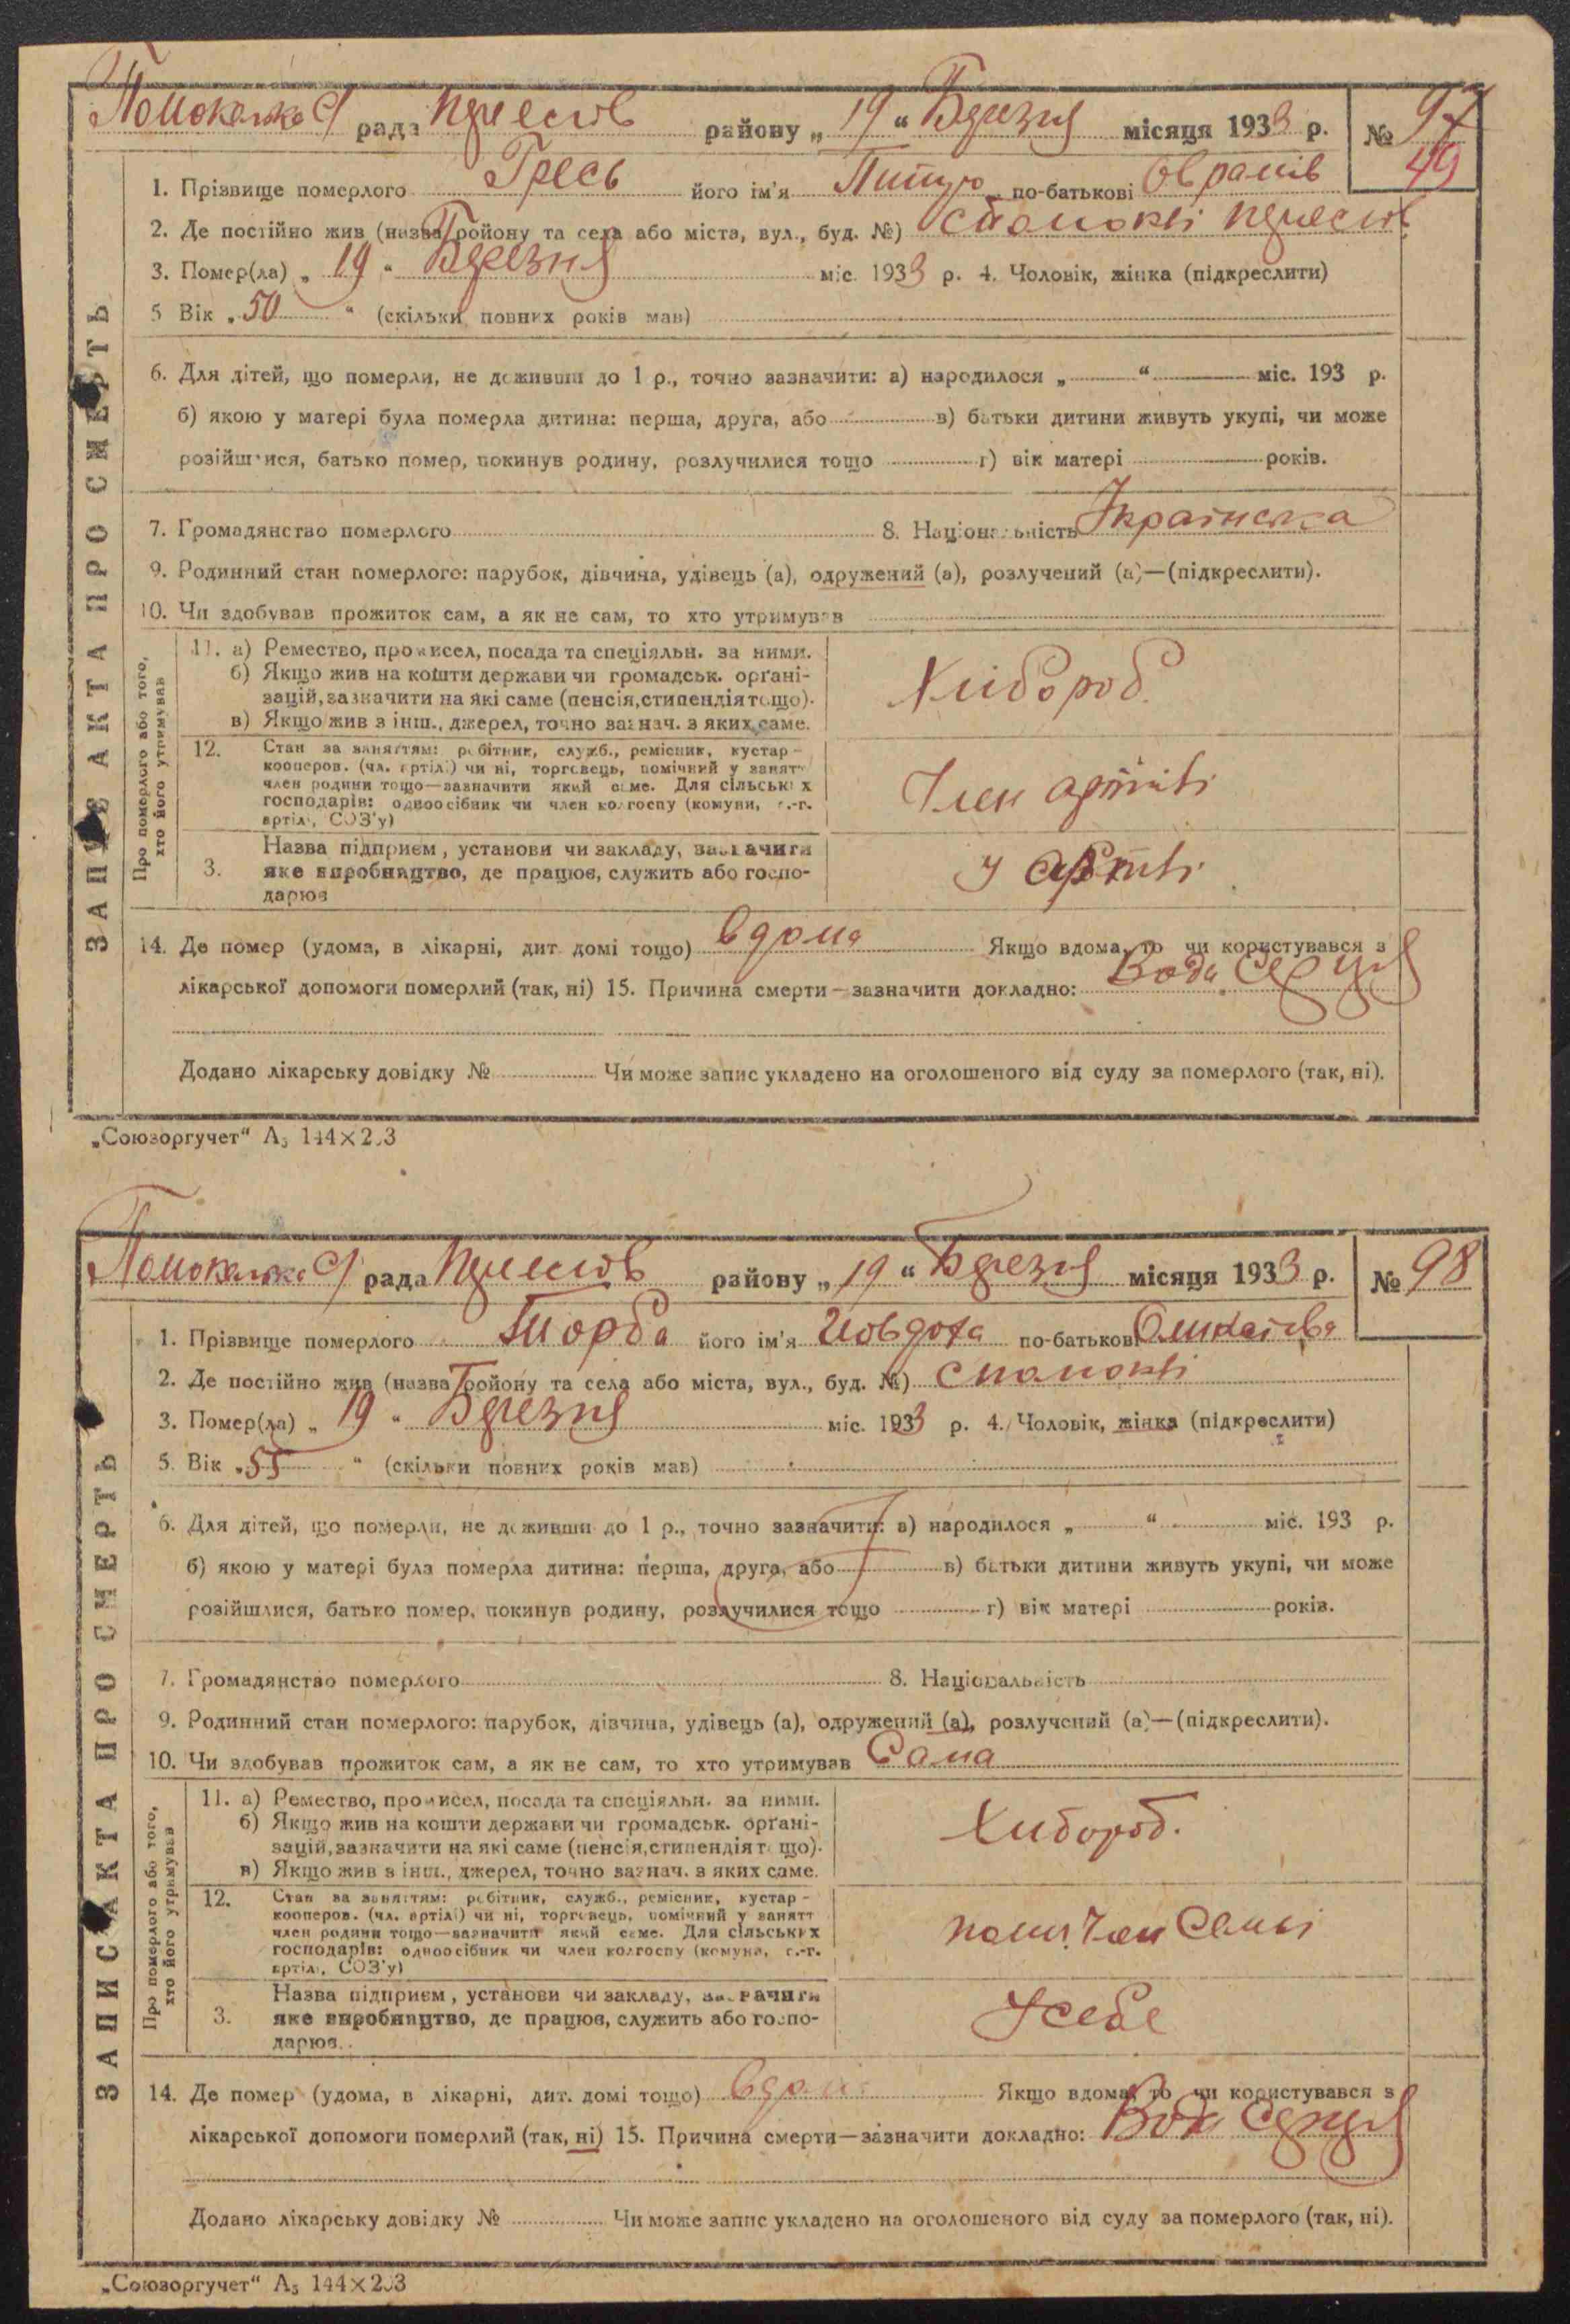 рада Пересіч району „ 19 “ Березня місяця 1933 р. № 97
49
1. Прізвище померлого Гресь його ім'я по-батькові
2. Де постійно жив (назва ройону та села або міста, вул., буд. №)
3. Помер(ла) „ 19 “ Березня міс. 1933 р. 4. Чоловік, жінка (підкреслити)
5 Вік „ 50 “ (скільки повних років мав)
6. Для дітей, що померли, не доживши до 1 р., точно зазначити: а) народилося „ “ міс. 193 р.
б) якою у матері була померла дитина: перша, друга, або в) батьки дитини живуть укупі, чи може
розійшлися, батько помер, покинув родину, розлучилися тощо г) вік матері років.
7. Громадянство померлого 8. Національність Українська
9. Родинний стан померлого: парубок, дівчина, удівець (а), одружений (а), розлучений (а)—(підкреслити).
10. Чи здобував прожиток сам, а як не сам, то хто утримував
ЗАПИС АКТА ПРО СМЕРТЬ
Про померлого або того, хто його утримував
11. а) Ремество, промисел, посада та спеціяльн. за ними.
б) Якщо жив на кошти держави чи громадськ. органі-
зацій, зазначити на які саме (пенсія, стипендія тощо).
в) Якщо жив з інш., джерел, точно зазнач. з яких саме.
Хлібороб.
12. Стан за заняттям: робітник, служб., ремісник, кустар-
кооперов. (чл. артілі) чи ні, торговець, помічний у занятт
член родини тощо—зазначити який саме. Для сільських
господарів: одноосібник чи член колгоспу (комуни, с.-г.
артілі, СОЗ'у)
Член артілі
3. Назва підприєм, установи чи закладу, зазначити
яке виробництво, де працює, служить або госпо-
дарює
У Артілі
14. Де помер (удома, в лікарні, дит. домі тощо) вдома Якщо вдома, то чи користувався з
лікарської допомоги померлий (так, ні) 15. Причина смерти—зазначити докладно: Вада Серця
Додано лікарську довідку № Чи може запис укладено на оголошеного від суду за померлого (так, ні).
„Союзоргучет“ А₅ 144×203
рада Пересіч району „ 19 “ Березня місяця 1933 р. № 98
1. Прізвище померлого Торба його ім'я Иовдоха по-батькові
2. Де постійно жив (назва ройону та села або міста, вул., буд. №)
3. Помер(ла) „ 19 “ Березня міс. 1933 р. 4. Чоловік, жінка (підкреслити)
5. Вік „ 55 “ (скільки повних років мав)
6. Для дітей, що померли, не доживши до 1 р., точно зазначити: а) народилося „ “ міс. 193 р.
б) якою у матері була померла дитина: перша, друга, або в) батьки дитини живуть укупі, чи може
розійшлися, батько помер, покинув родину, розлучилися тощо г) вік матері років.
7. Громадянство померлого 8. Національність
9. Родинний стан померлого: парубок, дівчина, удівець (а), одружений (а), розлучений (а)—(підкреслити).
10. Чи здобував прожиток сам, а як не сам, то хто утримував Сама
ЗАПИС АКТА ПРО СМЕРТЬ
Про померлого або того, хто його утримував
11. а) Ремество, промисел, посада та спеціяльн. за ними.
б) Якщо жив на кошти держави чи громадськ. органі-
зацій, зазначити на які саме (пенсія, стипендія тощо).
в) Якщо жив з інш., джерел, точно зазнач. з яких саме.
Хлібороб.
12. Стан за заняттям: робітник, служб., ремісник, кустар-
кооперов. (чл. артілі) чи ні, торговець, помічний у занятт
член родини тощо—зазначити який саме. Для сільських
господарів: одноосібник чи член колгоспу (комуни, с.-г.
артілі, СОЗ'у)
Член Семьі
3. Назва підприєм, установи чи закладу, зазначити
яке виробництво, де працює, служить або госпо-
дарює.
У себе
14. Де помер (удома, в лікарні, дит. домі тощо) вдома Якщо вдома, то чи користувався з
лікарської допомоги померлий (так, ні) 15. Причина смерти—зазначити докладно: Вада Серця
Додано лікарську довідку № Чи може запис укладено на оголошеного від суду за померлого (так, ні).
„Союзоргучет“ А₅ 144×203